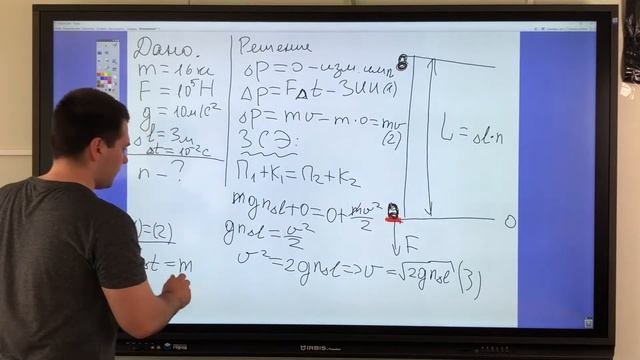 Дано.
m = 16 кг
F = 10⁵ Н
g = 10 м/с²
Δl = 3м
Δt = 10⁻² с
n - ?
(1)=(2)
Δt = m
Решение
ΔP = 0 - изм. имп
ΔP = FΔt - ЗИИ(1)
ΔP = mv - m·0 = mv
(2)
ЗСЭ:
П₁+К₁=П₂+К₂
mgnΔl+0=0+mv²/2
gnΔl = v²/2
v² = 2gnΔl => v = √2gnΔl (3)
L = Δl·n
0
F
IRBIS